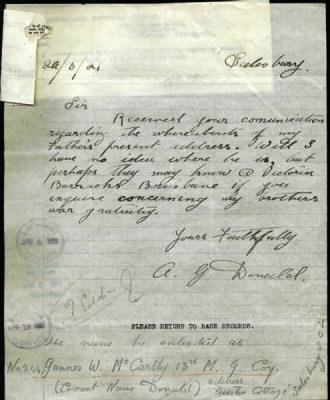 24/3/21
Salisbury.
Sir
Received your comunication
regarding the whereabouts of my
Father's present address. Well I
have no idea where he is, but
perhaps they may know @ Victoria
Barracks Brisbane if you
enquire concerning my brothers
war gratuity.
Yours Faithfully
A. G. Donald.
PLEASE RETURN TO BASE RECORDS.
the name he enlisted as
No 244 Gunner W. McCarthy 13th M. G. Coy.
(Correct Name Donald)
address
Cottage
Salisbury